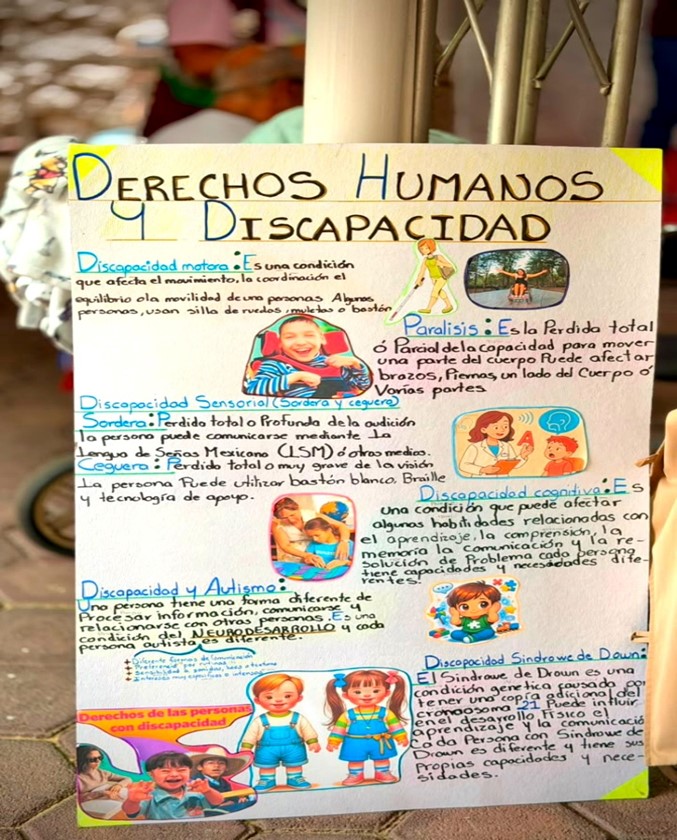 DERECHOS HUMANOS
Y DISCAPACIDAD
Discapacidad motora: Es una condición
que afecta el movimiento, la coordinación el
equilibrio o la movilidad de una personas Algunas
personas, usan silla de ruedas, muletas o bastón
Paralisis: Es la Perdida total
ó Parcial de la capacidad para mover
una parte del cuerpo Puede afectar
brazos, Piernas, un lado del Cuerpo ó
Varias partes
Discapacidad Sensorial (Sordera y ceguera)
Sordera: Perdida total o Profunda de la audición
la persona puede comunicarse mediante La
Lengua de Señas Mexicana (LSM) ó otros medios.
Ceguera: Perdida total o muy grave de la visión
La persona Puede utilizar bastón blanco, Braille
y tecnología de apoyo.
Discapacidad cognitiva: Es
una condición que puede afectar
algunas habilidades relacionadas con
el aprendizaje, la comprensión, la
memoria la comunicación y la re-
solución de Problema cada persona
tiene capacidades y necesidades dife-
rentes!
Discapacidad y Autismo:
Una persona tiene una forma diferente de
Procesar información, comunicarse y
relacionarse con otras personas. Es una
condición del NEURODESARROLLO y cada
persona autista es diferente.
+ Diferente formas de comunicación
+ Preferencia por rutinas
+ Sensibilidad a sonidos, luces o texturas
+ Intereses muy específicos o intensos
Discapacidad Sindrowe de Down:
El Sindrowe de Drown es una
condición genetica pausada por
tener una copia adicional del
cromosoma 21 Puede influir
en el desarrollo Físico el
aprendizaje y la comunicació
Cada Persona con Sindrowe de
Drown es diferente y tiene sus
Propias capacidades y nece-
sidades.
Derechos de las personas
con discapacidad